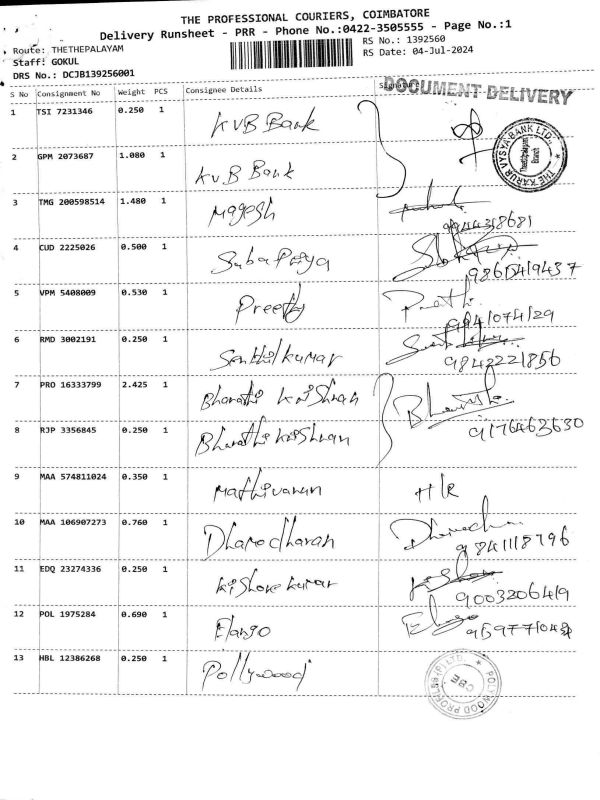 THE PROFESSIONAL COURIERS, COIMBATORE
Delivery Runsheet - PRR - Phone No.:0422-3505555 - Page No.:1
Route: THETHEPALAYAM
RS No.: 1392560
Staff: GOKUL
RS Date: 04-Jul-2024
DRS No.: DCJB139256001
S No Consignment No Weight PCS Consignee Details Signature
DOCUMENT DELIVERY
1 TSI 7231346 0.250 1 KVB Bank
THE KARUR VYSYA BANK LTD., Thethipalayam Branch
2 GPM 2073687 1.080 1 KVB Bank
3 TMG 200598514 1.480 1 Magesh
9944318681
4 CUD 2225026 0.500 1 Suba Priya
5 VPM 5408009 0.530 1 Preethy Preethi
9841074129
6 RMD 3002191 0.250 1 Senthil kumar
9842221856
7 PRO 16333799 2.425 1 Bharathi Krishnan
9176463630
8 RJP 3356845 0.250 1 Bharathi Krishnan
9 MAA 574811024 0.350 1 Mathivanan
10 MAA 106907273 0.760 1 Dhamodharan
9841118796
11 EDQ 23274336 0.250 1 Kishore kumar
9003206419
12 POL 1975284 0.690 1 Elango
13 HBL 12386268 0.250 1 Pollywood
CBE